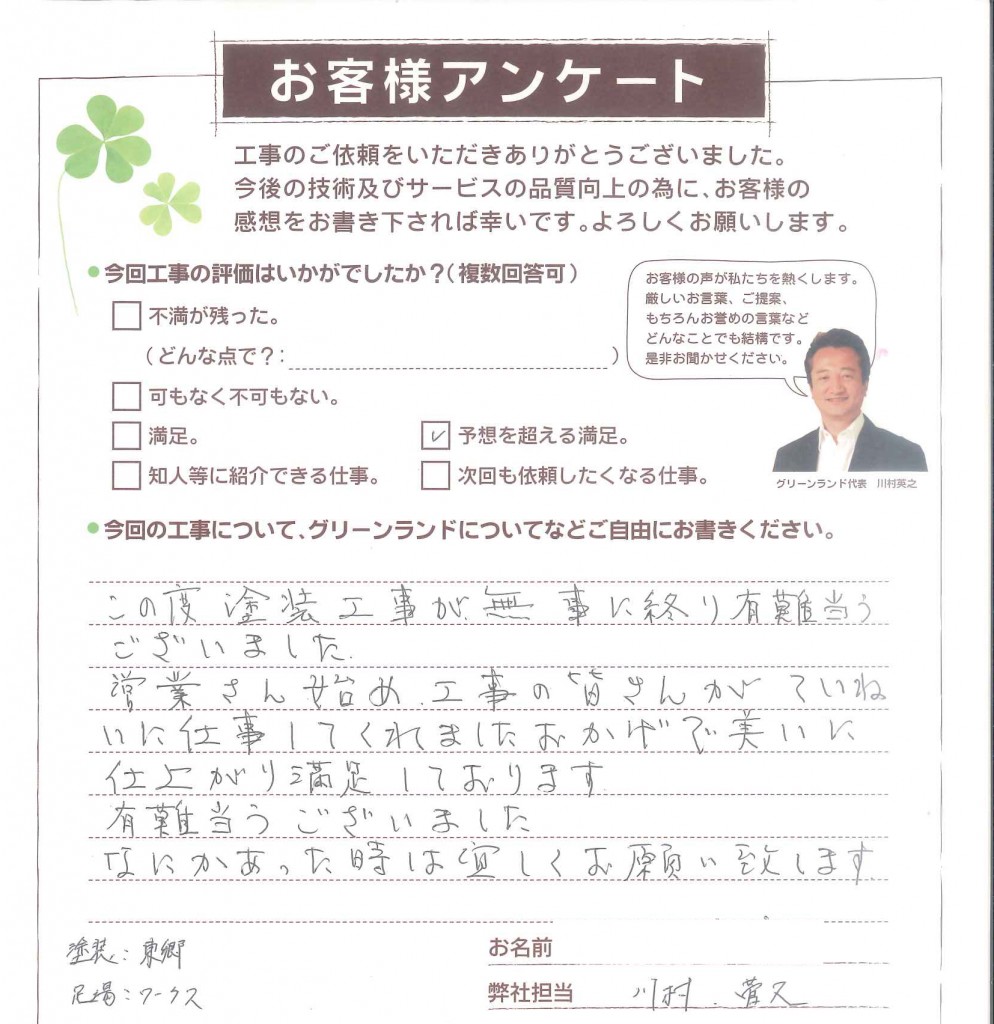 お客様アンケート
工事のご依頼をいただきありがとうございました。
今後の技術及びサービスの品質向上の為に、お客様の
感想をお書き下されば幸いです。よろしくお願いします。
今回工事の評価はいかがでしたか？（複数回答可）
不満が残った。
（どんな点で？：　）
可もなく不可もない。
満足。
予想を超える満足。
知人等に紹介できる仕事。
次回も依頼したくなる仕事。
お客様の声が私たちを熱くします。
厳しいお言葉、ご提案、
もちろんお誉めの言葉など
どんなことでも結構です。
是非お聞かせください。
グリーンランド代表　川村英之
今回の工事について、グリーンランドについてなどご自由にお書きください。
この度塗装工事が無事に終り有難当う
ございました.
営業さん始め.工事の皆さんがていね
いに仕事してくれましたおかげで美いに
仕上がり満足しております.
有難当うございました
なにかあった時は宜しくお願い致します.
塗装：東郷
足場：ワークス
お名前
弊社担当　川村.